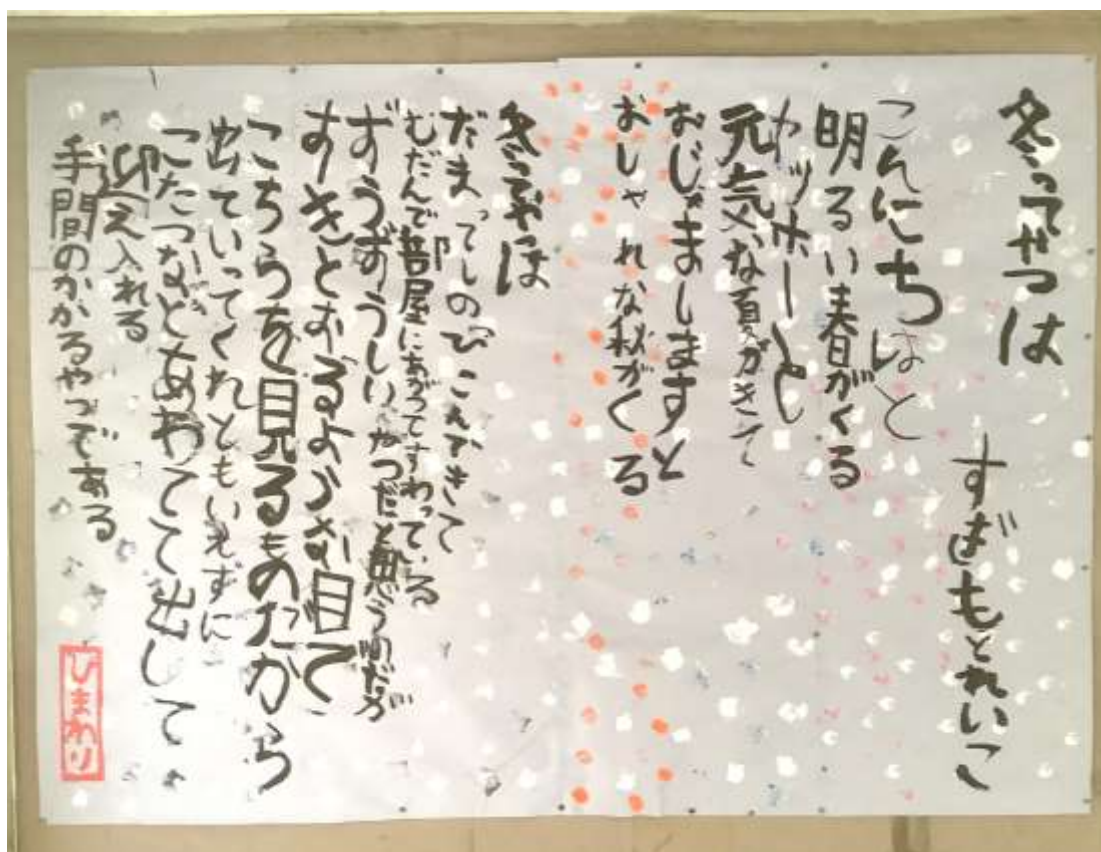 冬ってやつは
すぎもとれいこ
こんにちはと
明るい春がくる
ヤッホーと
元気な夏がきて
おじゃましますと
おしゃれな秋がくる
冬ってやつは
だまってしのびこんできて
むだんで部屋にあがってすわっている
ずうずうしいやつだと思うのだが
すきとおるような目で
こちらを見るものだから
出ていってくれともいえずに
こたつなどあわてて出して
迎え入れる
手間のかかるやつである
ひまわり